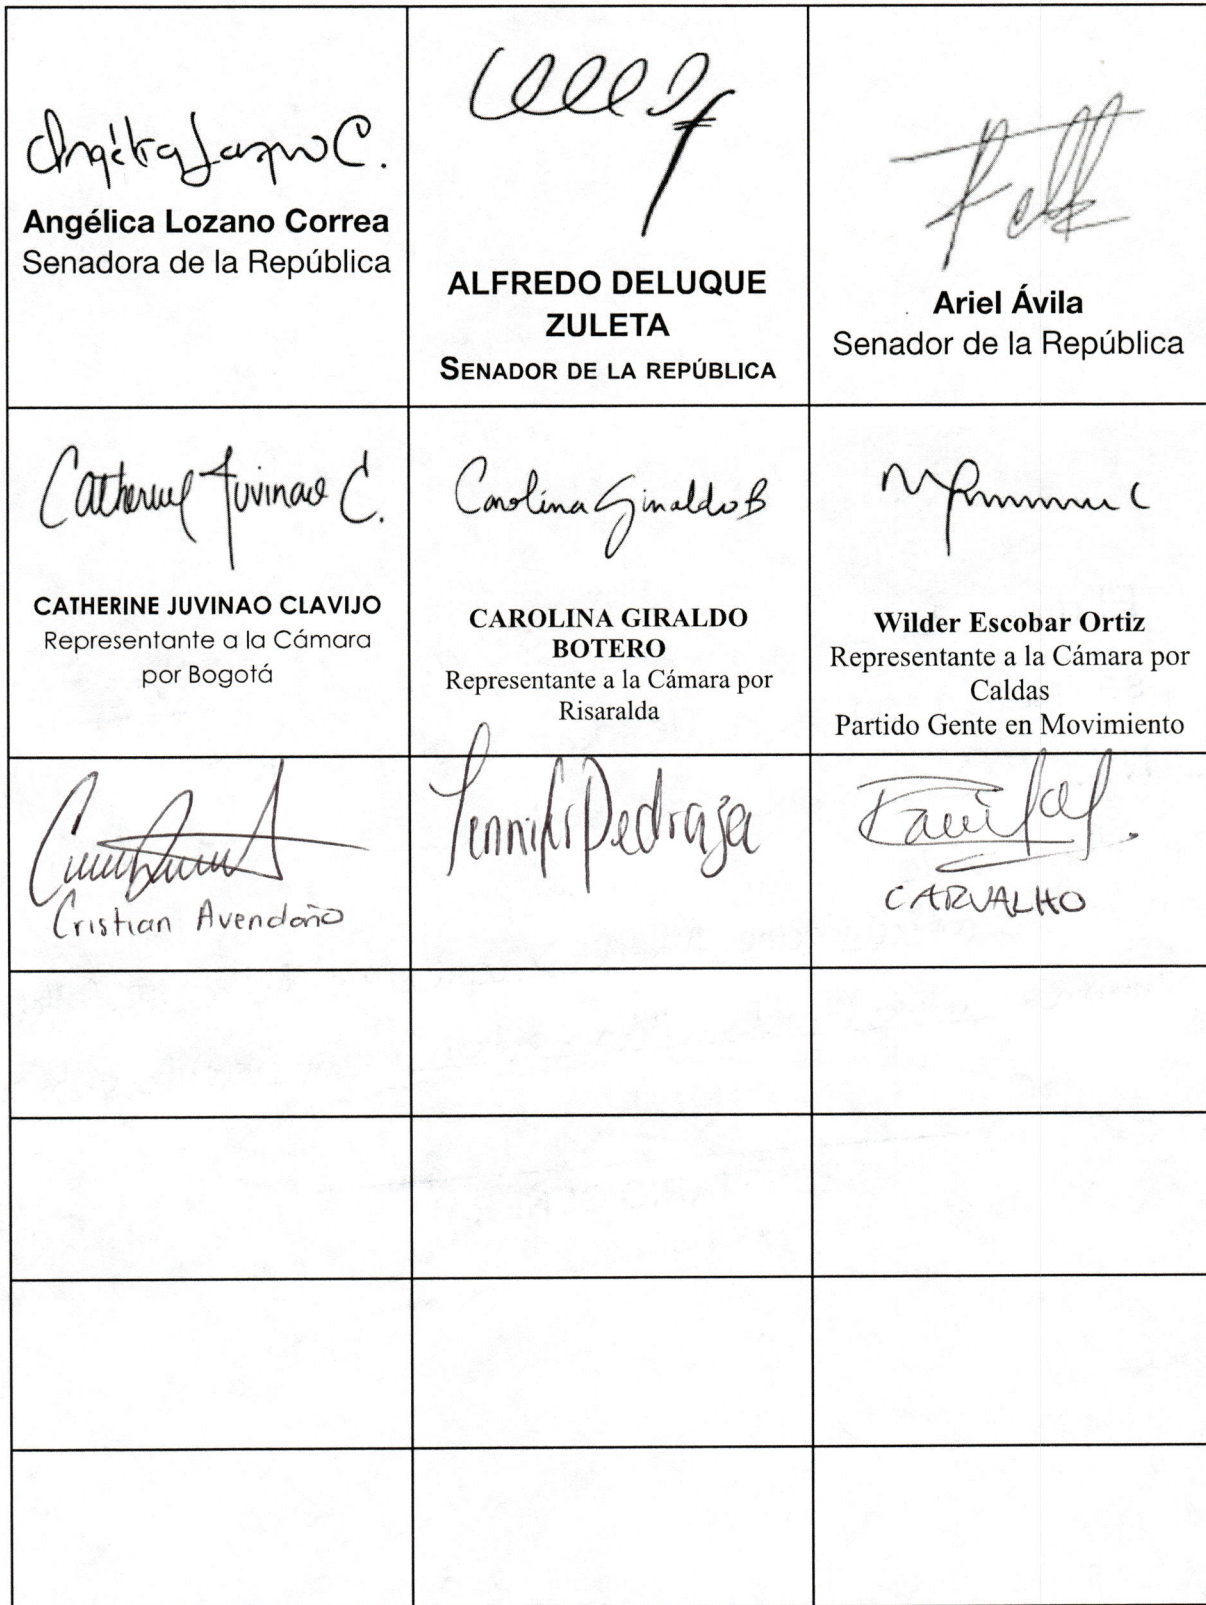 Angélica Lozano C.
Angélica Lozano Correa
Senadora de la República
ALFREDO DELUQUE
ZULETA
SENADOR DE LA REPÚBLICA
Ariel Ávila
Senador de la República
Catherine Juvinao C.
CATHERINE JUVINAO CLAVIJO
Representante a la Cámara
por Bogotá
Carolina Giraldo B
CAROLINA GIRALDO
BOTERO
Representante a la Cámara por
Risaralda
Wilder Escobar Ortiz
Representante a la Cámara por
Caldas
Partido Gente en Movimiento
Cristian Avendaño
Jennifer Pedraza
CARVALHO